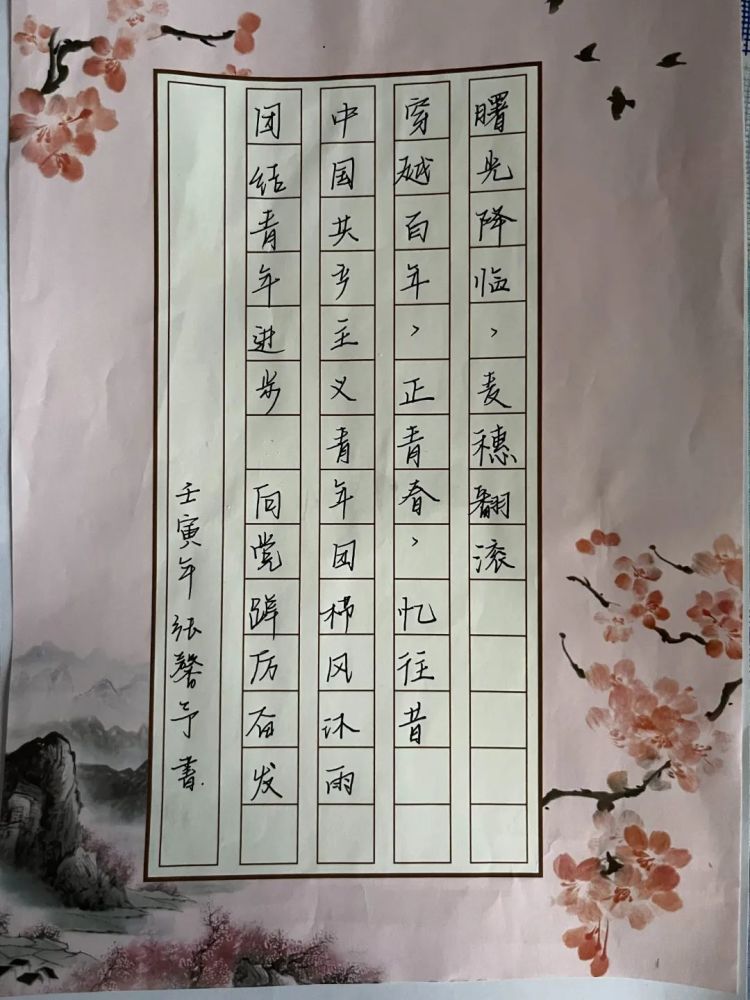 曙光降临，麦穗翻滚
穿越百年，正青春，忆往昔
中国共产主义青年团栉风沐雨
团结青年进步 向党踔厉奋发
壬寅年张馨予书